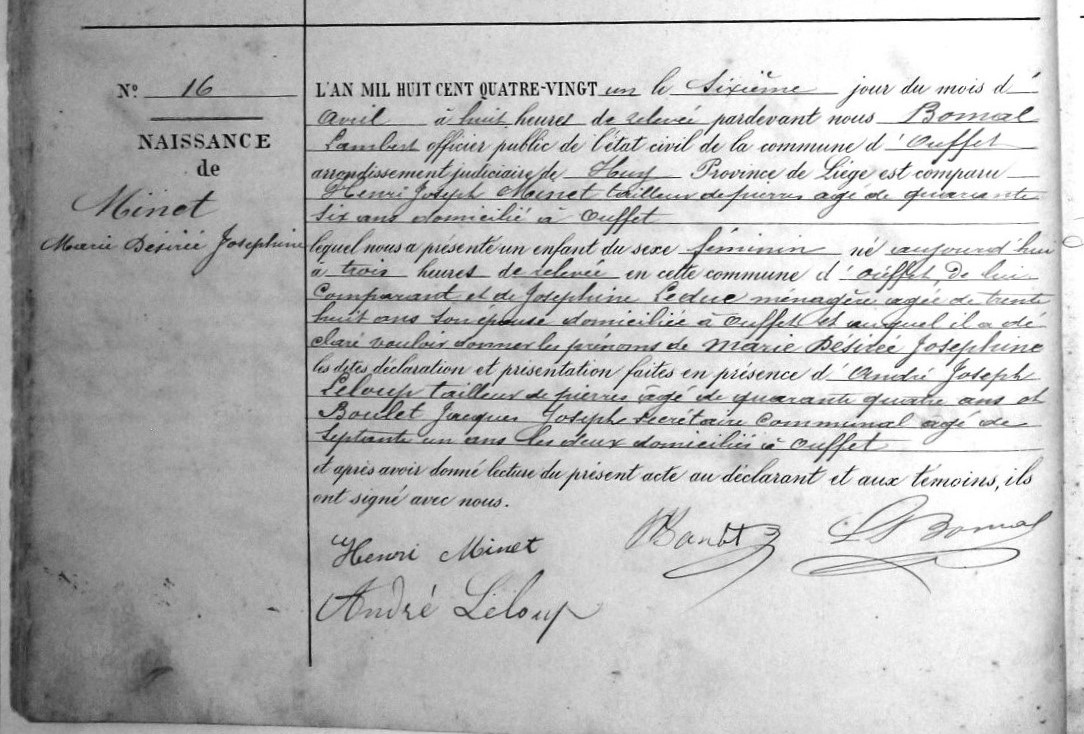 Nº 16
NAISSANCE
de
Minet
Marie Désirée Josephine
L'AN MIL HUIT CENT QUATRE-VINGT un le sixième jour du mois d'
Avril à huit heures de relevée pardevant nous Bomal
Lambert officier public de l'état civil de la commune d'Ouffet
arrondissement judiciaire de Huy Province de Liège est comparu
Henri Joseph Minet tailleur de pierres agé de quarante
six ans domicilié à Ouffet
lequel nous a présenté un enfant du sexe féminin né aujourd'hui
a trois heures de relevée en cette commune d'Ouffet, de lui
comparant et de Josephine Leduc ménagère agée de trente
huit ans son epouse domiciliée à Ouffet et auquel il a dé
claré vouloir donner les prénoms de Marie Désirée Josephine
les dites déclaration et présentation faites en présence d'André Joseph
Leloup tailleur de pierres âgé de quarante quatre ans et
Boulet Jacques Joseph secrétaire communal agé de
septante un ans les deux domiciliés à Ouffet
et après avoir donné lecture du présent acte au déclarant et aux témoins, ils
ont signé avec nous.
Henri Minet
L Bomal
André Leloup